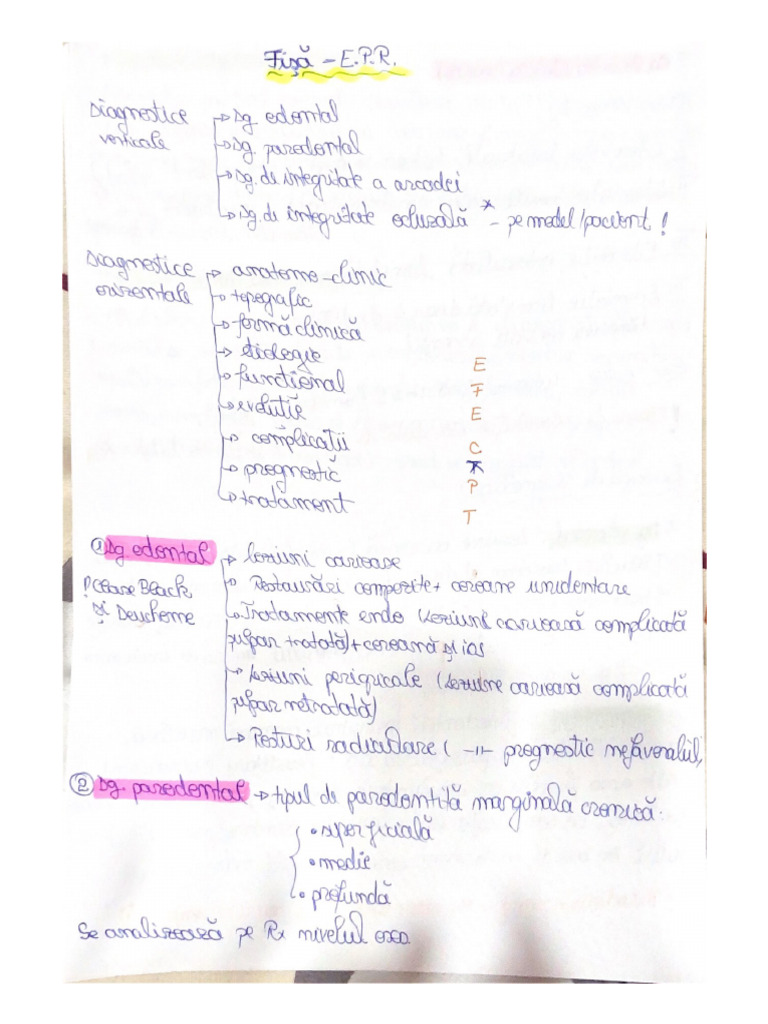 Fișă - E.P.R.
Diagnostice verticale
→ Dg. odontal
→ Dg. parodontal
→ Dg. de integritate a arcadei
→ Dg. de integritate ocluzală * - pe model/pacient !
Diagnostice orizontale
→ anatomo-clinic
→ topografic
→ formă clinică
→ etiologie
→ funcțional
→ evoluție
→ complicații
→ prognostic
→ tratament
E
F
E
C
*
P
T
① Dg. odontal
! Clase Black
și
→ leziuni carioase
→ Restaurări compozite + coroane unidentare
→ Tratamente endo (leziuni carioasă complicată
tratată) + coroană și
→ leziuni periapicale (leziune carioasă complicată
netratată)
→ Resturi radiculare ( -11- prognostic nefavorabil)
② Dg. parodontal → tipul de parodontită marginală cronică:
• superficială
• medie
• profundă
Se analizează pe Rx nivelul osos